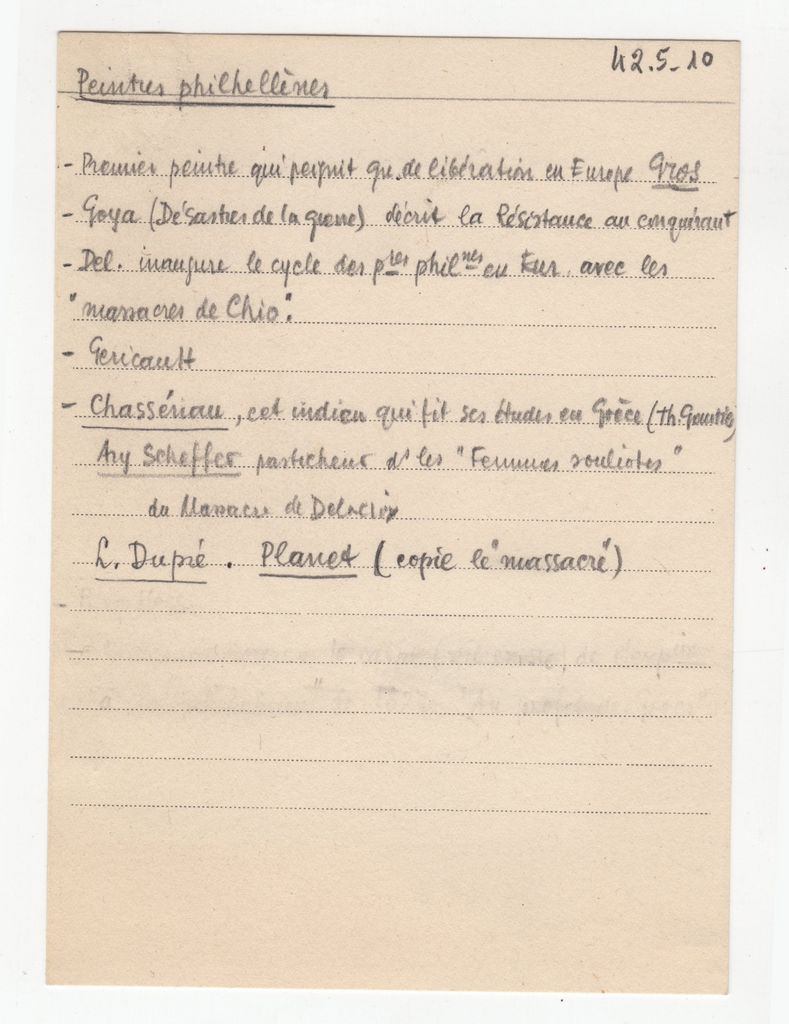 42.5-10
Peintres philhellènes
- Premier peintre qui peignit gu. de libération en Europe Gros
- Goya (Désastres de la guerre) décrit la Résistance au conquérant
- Del. inaugure le cycle des ptres philnes en Eur. avec les
"massacres de Chio".
- Gericault
- Chassériau, cet indien qui fit ses études en Grèce (Th. Gautier)
Ary Scheffer pasticheur ds les "Femmes souliotes"
du Massacre de Delacroix
L. Dupré. Planet (copie le "massacre")